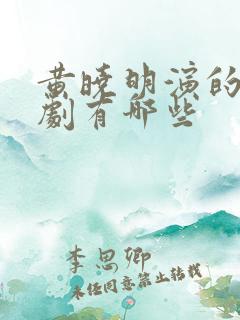 黄曉明演的
劇有哪些
李思卿
未经同意禁止转载